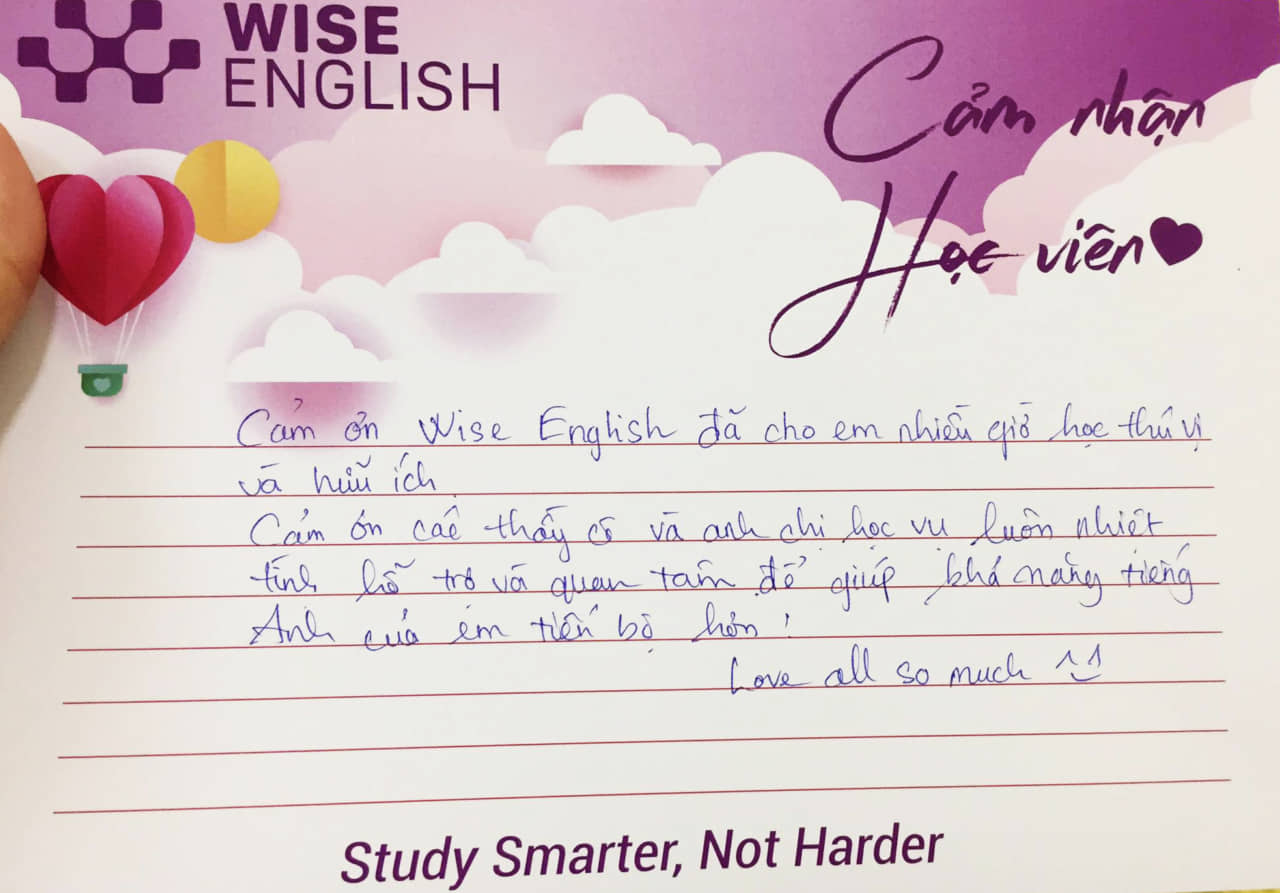 WISE
ENGLISH
Cảm nhận
Học viên
Cảm ơn Wise English đã cho em nhiều giờ học thú vị
và hữu ích
Cảm ơn các thầy cô và anh chị học vụ luôn nhiệt
tình hỗ trợ và quan tâm để giúp khả năng tiếng
Anh của em tiến bộ hơn!
Love all so much ^^
Study Smarter, Not Harder